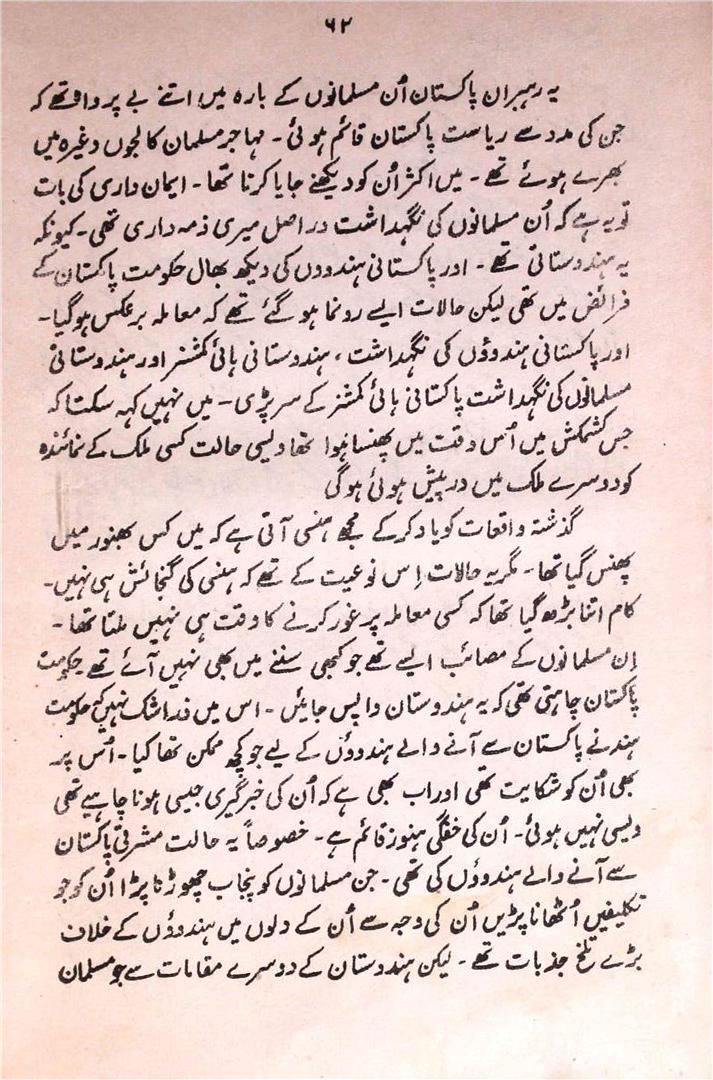 ۶۲
یہ رہبران پاکستان اُن مسلمانوں کے بارہ میں اتنے بے پرواہ تھے کہ
جن کی مدد سے ریاست پاکستان قائم ہوئی۔ مہاجر مسلمان کالجوں وغیرہ میں
بھرے ہوئے تھے۔ میں اکثر اُن کو دیکھنے جایا کرتا تھا۔ ایمان داری کی بات
تو یہ ہے کہ اُن مسلمانوں کی نگہداشت در اصل میری ذمہ داری تھی۔ کیونکہ
یہ ہندوستانی تھے۔ اور پاکستانی ہندووں کی دیکھ بھال حکومت پاکستان کے
فرائض میں تھی لیکن حالات ایسے رونما ہو گئے تھے کہ معاملہ برعکس ہوگیا۔
اور پاکستانی ہندوؤں کی نگہداشت، ہندوستانی ہائی کمشنر اور ہندوستانی
مسلمانوں کی نگہداشت پاکستانی ہائی کمشنر کے سر پڑی۔ میں نہیں کہہ سکتا کہ
جس کشمکش میں اُس وقت میں پھنسا ہوا تھا ویسی حالت کسی ملک کے نمائندہ
کو دوسرے ملک میں درپیش ہوئی ہوگی
گذشتہ واقعات کو یاد کر کے مجھے ہنسی آتی ہے کہ میں کس بھنور میں
پھنس گیا تھا۔ مگر یہ حالات اِس نوعیت کے تھے کہ ہنسی کی گنجائش ہی نہیں۔
کام اتنا بڑھ گیا تھا کہ کسی معاملہ پر غور کرنے کا وقت ہی نہیں ملتا تھا۔
اِن مسلمانوں کے مصائب ایسے تھے جو کبھی سننے میں بھی نہیں آئے تھے حکومت
پاکستان چاہتی تھی کہ یہ ہندوستان واپس جائیں۔ اس میں ذرا شک نہیں کہ حکومت
ہند نے پاکستان سے آنے والے ہندوؤں کے لیے جو کچھ ممکن تھا کیا۔ اُس پر
بھی اُن کو شکایت تھی اور اب بھی ہے کہ اُن کی خبر گیری جیسی ہونا چاہیے تھی
ویسی نہیں ہوئی۔ اُن کی خفگی ہنوز قائم ہے۔ خصوصاً یہ حالت مشرقی پاکستان
سے آنے والے ہندوؤں کی تھی۔ جن مسلمانوں کو پنجاب چھوڑنا پڑا اُن کو جو
تکلیفیں اُٹھانا پڑیں اُن کی وجہ سے اُن کے دلوں میں ہندوؤں کے خلاف
بڑے تلخ جذبات تھے۔ لیکن ہندوستان کے دوسرے مقامات سے جو مسلمان